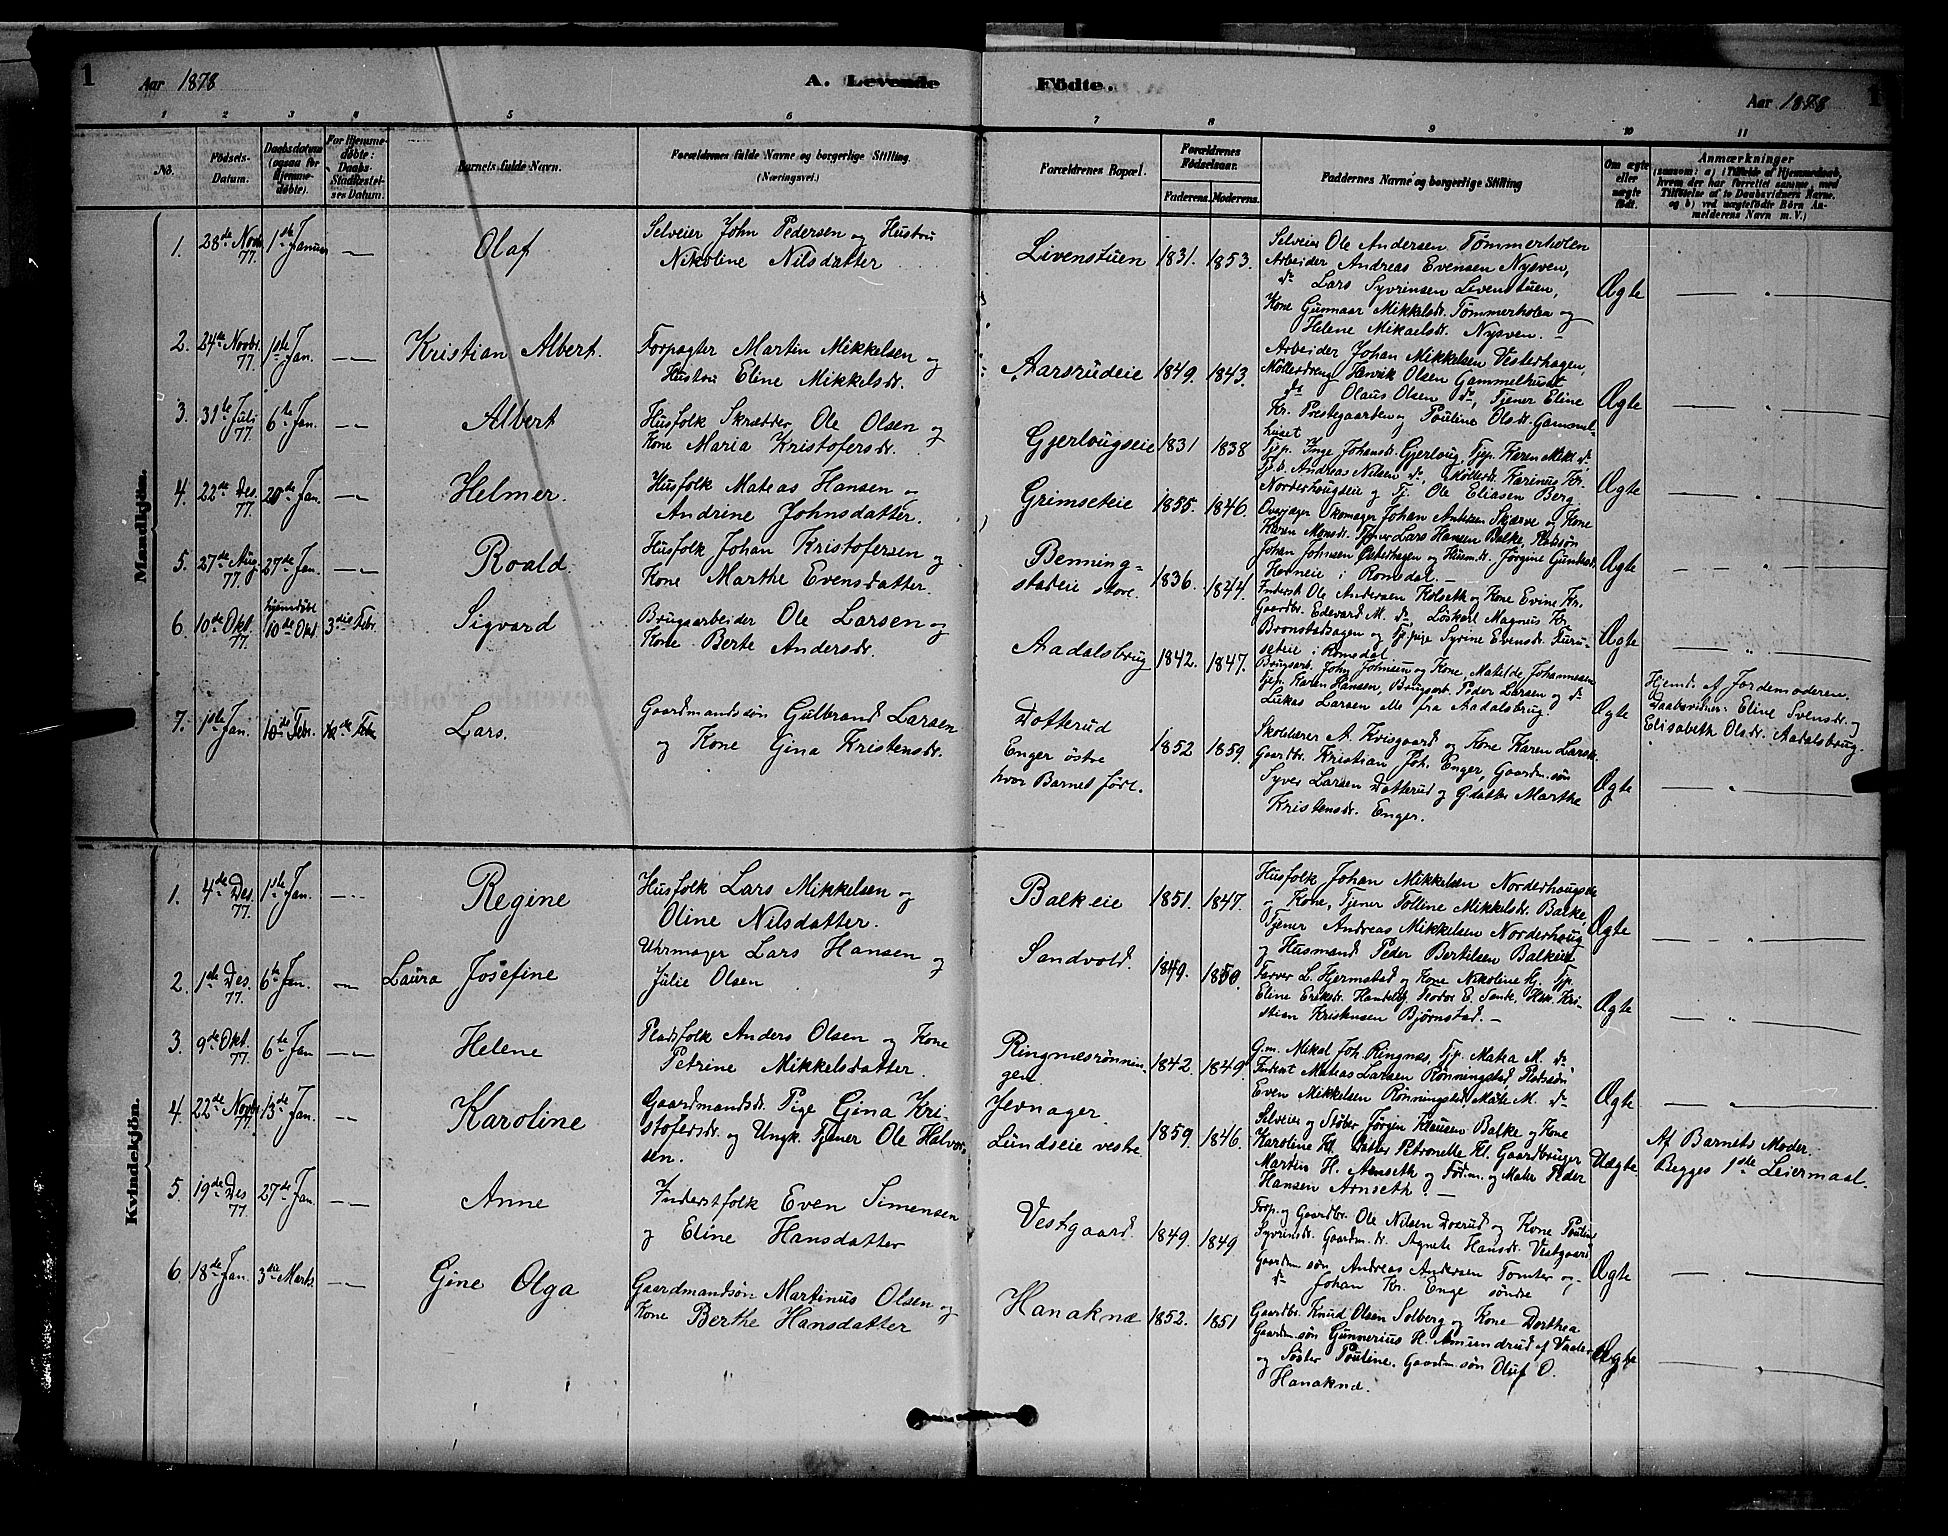 1
Aar 1878
A. Levende Födte.
Aar 1878
1
1 2 3 4 5 6 7 8 9 10 11
No.
Födsels-
Datum.
Daabsdatum
(ogsaa for
Hjemme-
döbte).
For Hjemme-
döbte:
Daabs-
Stadfæstel-
ses Datum.
Barnets fulde Navn.
Forældrenes fulde Navne og borgerlige Stilling.
(Næringsvei.)
Forældrenes Bopæl.
Forældrenes
Födselsaar.
Faderens. Moderens.
Faddernes Navne og borgerlige Stilling
Om ægte
eller
uægte
födt.
Anmærkninger
(saasom: a) i Tilfælde af Hjemmedaab,
hvem der har forrettet samme, med
Tilföielse af to Daabsvidners Navne.
og b) ved uægtefödte Börn An-
melderens Navn m. V.)
Mandkjön.
1. 28de Novbr 77. 1ste Januar — Olaf
Selveier John Pedersen og Hustru
Nikoline Nilsdatter
Livenstuen 1831. 1853.
Selveier Ole Andersen Tømmerholen
Arbeider Andreas Evensen Nysven,
do Lars Syvrinsen Livenstuen,
Kone Gunnaar Mikkelsdr. Tømmerholen og
Helene Mikaelsdr. Nysven. —
Ægte
2. 24de Novbr. 77. 1ste Jan. — Kristian Albert.
Forpagter Martin Mikkelsen og
Hustru Eline Mikkelsdr.
Aarsrudeie 1849. 1843.
Arbeider Johan Mikkelsen Vesterhagen,
Møllerdreng Henrik Olsen Gammelhuset
do Olaus Olsen do, Tjener Eline
Kr. Prestegaarden og Pauline Olsdr. Gammel-
huset
Ægte
3. 31te Juli 77. 6te Jan. — Albert
Husfolk Skrædder Ole Olsen og
Kone Maria Kristofersdr.
Gjerlougseie 1831 1838
Tjp. Inge Johansdr. Gjerloug, Tjp. Karen Mikk do
Andreas Nilsen do, Møllerdr. Karinus Kr.
Norderhougseie og Tj. Ole Eliasen Berg
Ægte
4. 22de Des. 77. 20de Jan. — Helmer.
Husfolk Mateas Hansen og
Andrine Johnsdatter.
Grimseteie 1855. 1846.
Skomager Johan Antesen Skjærve og Kone
Karen Monsdr. Tjener Lars Hansen Balke, Pladssøn
Johan Johnsen Østerhagen og Husmdr. Jørgine Gundersdr.
Horneie i Romsdal. —
Ægte
5. 27de Aug. 77. 27de Jan. — Roald.
Husfolk Johan Kristofersen og
Kone Marthe Evensdatter.
Benning-
stadeie store. 1836. 1844.
Inderst Ole Andersen Kolseth og Kone Evine Kr.
Gaardbr. Edevard M. do, Løskarl Magnus Kr.
Bronstadsagen og Tj.pige Syrine Evensdr. Furu-
seteie i Romsdal
Ægte
6. 10de Okt. 77. hjemdøbt 10de Okt 3die Febr. Sigvard
Brugsarbeider Ole Larsen og
Kone Berte Andersdr.
Aadalsbrug 1842. 1847.
Brugsarb. John Johnsen og Kone, Matilde Johannesen
Tjp. Karen Hansen, Brugsarb. Peder Larsen og do
Lukas Larsen Alle fra Aadalsbrug.
Ægte
Hjemd. af Jordemoderen.
Daabsvidner: Eline Svensdr. og
Elisabeth Olsdr. Aadalsbrug.
7. 1ste Jan. 10de Febr. Lars.
Gaardmandssøn Gulbrand Larsen
og Kone Gina Kristensdr.
Dotterud
Enger østre
hvor Barnet født. 1852 1859.
Skolelærer A. Krisgaard og Kone Karen Larsdr.
Gaardbr. Kristian Joh. Enger, Gaardm.søn
Syver Larsen Dotterud og G.datter Marthe
Kristensdr. Enger.
Ægte
Kvindekjön.
1. 4de Des. 77. 1ste Jan. — Regine
Husfolk Lars Mikkelsen og
Oline Nilsdatter.
Balkeie 1851. 1847.
Husfolk Johan Mikkelsen Norderhougseie
og Kone, Tjener Tolline Mikkelsdr. Balke,
Tjener Andreas Mikkelsen Norderhoug
og Husmand Peder Bertilsen Balkeie
Ægte
2. 1ste Des. 77. 6te Jan. — Laura Josefine
Uhrmager Lars Hansen og
Julie Olsen
Sandvold. 1849. 1850.
Farver L. Hjermstad og Kone Nikoline Hj. Tjp.
Eline Eriksdr. Teodor E. Kri-
stian Kristiansen Bjørnstad. —
Ægte
3. 9de Okt. 77. 6te Jan — Helene
Pladsfolk Anders Olsen og Kone
Petrine Mikkelsdatter.
Ringnæsrønnin-
gen. 1842. 1849.
G.m. Mikal Joh. Ringnæs, Tjp. Matea M. do
Inderst Mateas Larsen Rønningstad, Pladssøn
Even Mikkelsen Rønningstad, Mate M. do
Ægte
4. 22de Novbr. 77. 13de Jan. — Karoline
Gaardmandsdr. Pige Gina Kri-
stofersdr. og Ungk. Tjener Ole Halvor-
sen.
Jevnager
Lundseie vestre 1859. 1846.
Selveier og Støber Jørgen Klausen Balke og Kone
Karoline Kl. Datter Petronelle Kl. Gaardbruger
Martin H. Arnseth og Gdm. og Maler Peder
Hansen Arnseth. —
Uægte
Af Barnets Moder.
Begges 1ste Leiermaal.
5. 19de Des 77. 27de Jan. — Anne
Inderstfolk Even Simensen
og Eline Hansdatter
Vestgaard. 1849. 1849
Forp. og Gaardbr. Ole Nilsen Dverud og Kone Pauline
Syvrinsdr. Gaardm.dr. Agnete Hansdr. Vestgaard
Gaardm.søn Andreas Andersen Tomter og,
do Johan Kr. Enge søndre
Ægte
6. 18de Jan. 3die Marts. — Gine Olga
Gaardmandsøn Martinus Olsen og
Kone Berthe Hansdatter
Hanaknæ 1852. 1851
Gaardbr. Knud Olsen Solberg og Kone Dorthea
Gaardm.søn Gunnerius H. Amundrud af Vaaler
og Søster Pauline. Gaardm.søn Oluf O.
Hanaknæ.
Ægte